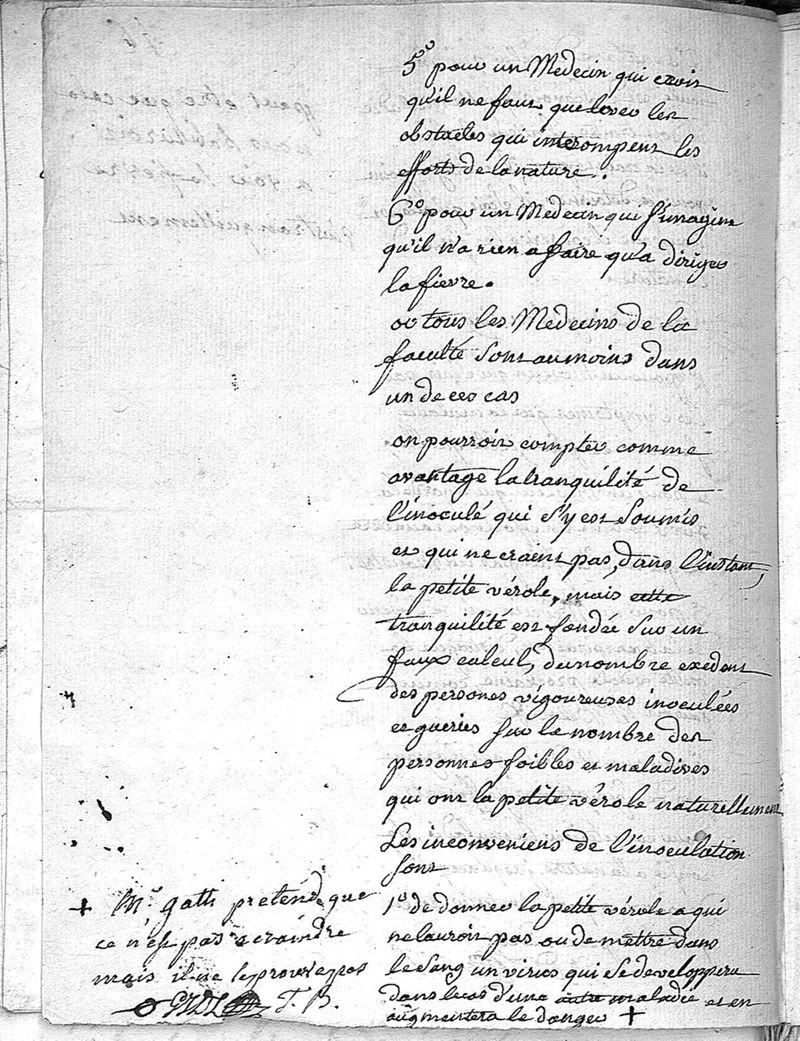 5º pour un Medecin qui croit
qu'il ne faut que lever les
obstacles qui interompent les
efforts de la nature.
6º pour un Medecin qui s'imagine
qu'il n'a rien a faire qu'a diriger
la fievre.
or tous les Medecins de la
faculté sont au moins dans
un de ces cas
on pourroit compter comme
avantage la tranquilité de
l'inoculé qui s'y est soumis
et qui ne craint pas, dans l'instant,
la petite vérole, mais cette
tranquilité est fondée sur un
faux calcul, du nombre exedent
des persones vigoureuses inoculées
et gueries sur le nombre des
personnes foibles et maladives
qui ont la petite vérole naturellement
Les inconveniens de l'inoculation
sont
1º de donner la petite vérole a qui
ne l'auroit pas ou de mettre dans
le sang un virus qui se developpera
dans le cas d'une autre maladie et en
augmentera le danger +
+ Mr. gatti pretend que
ce n'est pas a craindre
mais il ne le prouve pas
T. B.